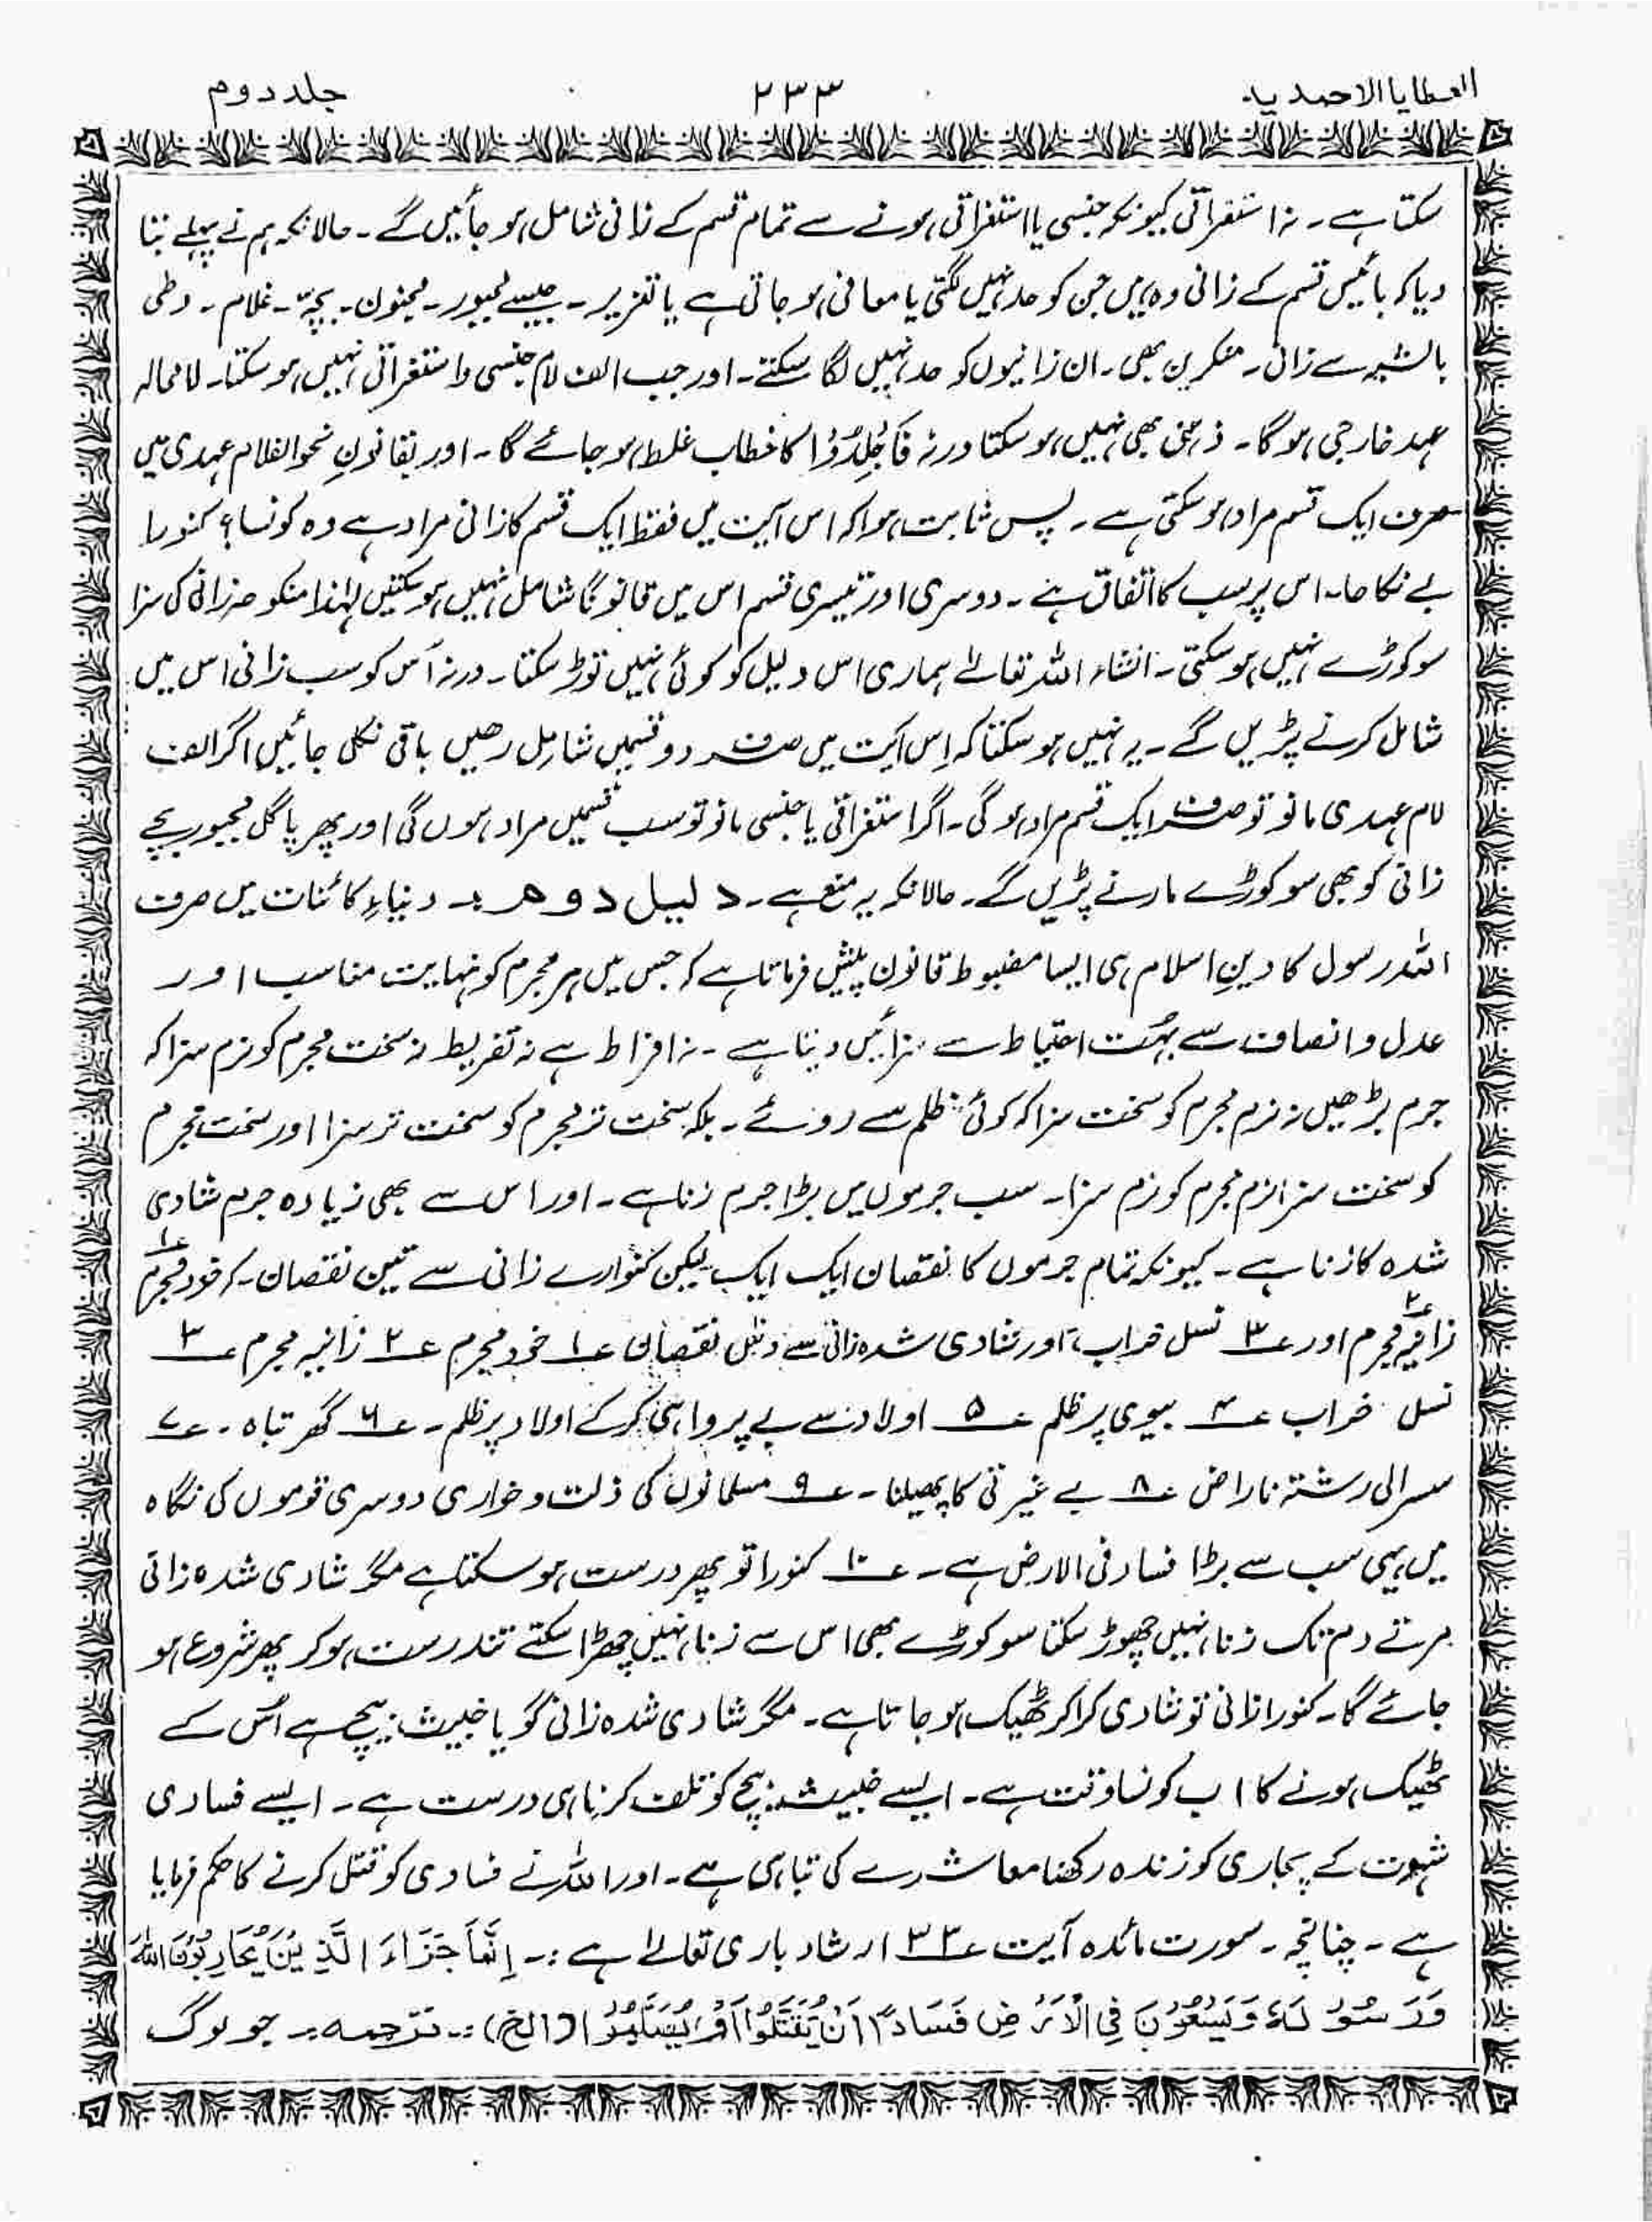 العطایا الاحمدیہ ۲۳۳ جلد دوم
سکتا ہے۔ نہ استغراقی کیونکہ جنسی یا استغراقی ہونے سے تمام قسم کے زانی شامل ہو جائیں گے۔ حالانکہ ہم نے پہلے بتا
دیا کہ بائیس قسم کے زانی وہ ہیں جن کو حد نہیں لگتی یا معافی ہو جاتی ہے یا تعزیر۔ جیسے مجبور۔ مجنون۔ بچہ۔ غلام۔ وطی
بالشبہ سے زانی۔ منکرین بھی۔ ان زانیوں کو حد نہیں لگا سکتے۔ اور جب الف لام جنسی و استغراقی نہیں ہو سکتا۔ لا محالہ
عہد خارجی ہو گا۔ ذہنی بھی نہیں ہو سکتا ورنہ فَاجْلِدُوْا کا خطاب غلط ہو جائے گا۔ اور بقانونِ نحو الف لام عہدی میں
صرف ایک قسم مراد ہو سکتی ہے۔ پس ثابت ہوا کہ اس آیت میں فقط ایک قسم کا زانی مراد ہے وہ کونسا؟ کنورا
بے نکاحا۔ اس پر سب کا اتفاق ہے۔ دوسری اور تیسری قسم اس میں قانوناً شامل نہیں ہو سکتیں لہٰذا منکوحہ زانی کی سزا
سو کوڑے نہیں ہو سکتی۔ انشاء اللہ تعالےٰ ہماری اس دلیل کو کوئی نہیں توڑ سکتا۔ ورنہ اُس کو سب زانی اس میں
شامل کرنے پڑیں گے۔ یہ نہیں ہو سکتا کہ اِس آیت میں صرف دو قسمیں شامِل رھیں باقی نکلی جائیں اگر الف
لام عہدی مانو تو صرف ایک قسم مراد ہو گی۔ اگر استغراقی یا جنسی مانو تو سب قسمیں مراد ہوں گی اور پھر پاگل مجبور بچے
زانی کو بھی سو کوڑے مارنے پڑیں گے۔ حالانکہ یہ منع ہے۔ دلیل دوھم :۔ دنیاءِ کائنات میں صرف
اللہ رسول کا دینِ اسلام ہی ایسا مضبوط قانون پیش فرماتا ہے کہ جس میں ہر مجرم کو نہایت مناسب اور
عدل و انصاف سے بہُت احتیاط سے سزائیں دیتا ہے۔ نہ افراط ہے نہ تفریط نہ سخت مجرم کو نرم سزا کہ
جرم بڑھیں نہ نرم مجرم کو سخت سزا کہ کوئی ظلم سے روئے۔ بلکہ سخت تر مجرم کو سخت تر سزا اور سخت مجرم
کو سخت سزا نرم مجرم کو نرم سزا۔ سب جرموں میں بڑا جرم زنا ہے۔ اور اس سے بھی زیادہ جرم شادی
شدہ کا زنا ہے۔ کیونکہ تمام جرموں کا نقصان ایک ایک لیکن کنوارے زانی سے تین نقصان۔ کہ ع۱ خود مجرم
ع۲ زانیہ مجرم اور ع۳ نسل خراب، اور شادی شدہ زانی سے دس نقصان ع۱ خود مجرم ع۲ زانیہ مجرم ع۳
نسل خراب ع۴ بیوی پر ظلم ع۵ اولاد سے بے پرواہی کرکے اولاد پر ظلم۔ ع۶ گھر تباہ۔ ع۷
سسرالی رشتہ ناراض ع۸ بے غیرتی کا پھیلنا۔ ع۹ مسلمانوں کی ذلت و خواری دوسری قوموں کی نگاہ
میں یہی سب سے بڑا فساد فی الارض ہے۔ ع۱۰ کنورا تو پھر درست ہو سکتا ہے مگر شادی شدہ زانی
مرتے دم تک زنا نہیں چھوڑ سکتا سو کوڑے بھی اس سے زنا نہیں چھڑا سکتے تندرست ہو کر پھر شروع ہو
جائے گا۔ کنورا زانی تو شادی کرا کر ٹھیک ہو جاتا ہے۔ مگر شادی شدہ زانی گویا خبیث بیج ہے اُس کے
ٹھیک ہونے کا اب کونسا وقت ہے۔ ایسے خبیث بیج کو تلف کرنا ہی درست ہے۔ ایسے فسادی
شہوت کے پجاری کو زندہ رکھنا معاشرے کی تباہی ہے۔ اور اللہ نے فسادی کو قتل کرنے کا حکم فرمایا
ہے۔ چنانچہ۔ سورت مائدہ آیت ع۳۳ ارشاد باری تعالےٰ ہے :۔ اِنَّمَا جَزَاءَ الَّذِیْنَ یُحَارِبُوْنَ اللّٰہَ
وَرَسُوْلَہٗ وَیَسْعَوْنَ فِی الْاَرْضِ فَسَادًا اَنْ یُّقَتَّلُوْا اَوْ یُصَلَّبُوْا (الخ) :۔ ترجمہ :۔ جو لوگ